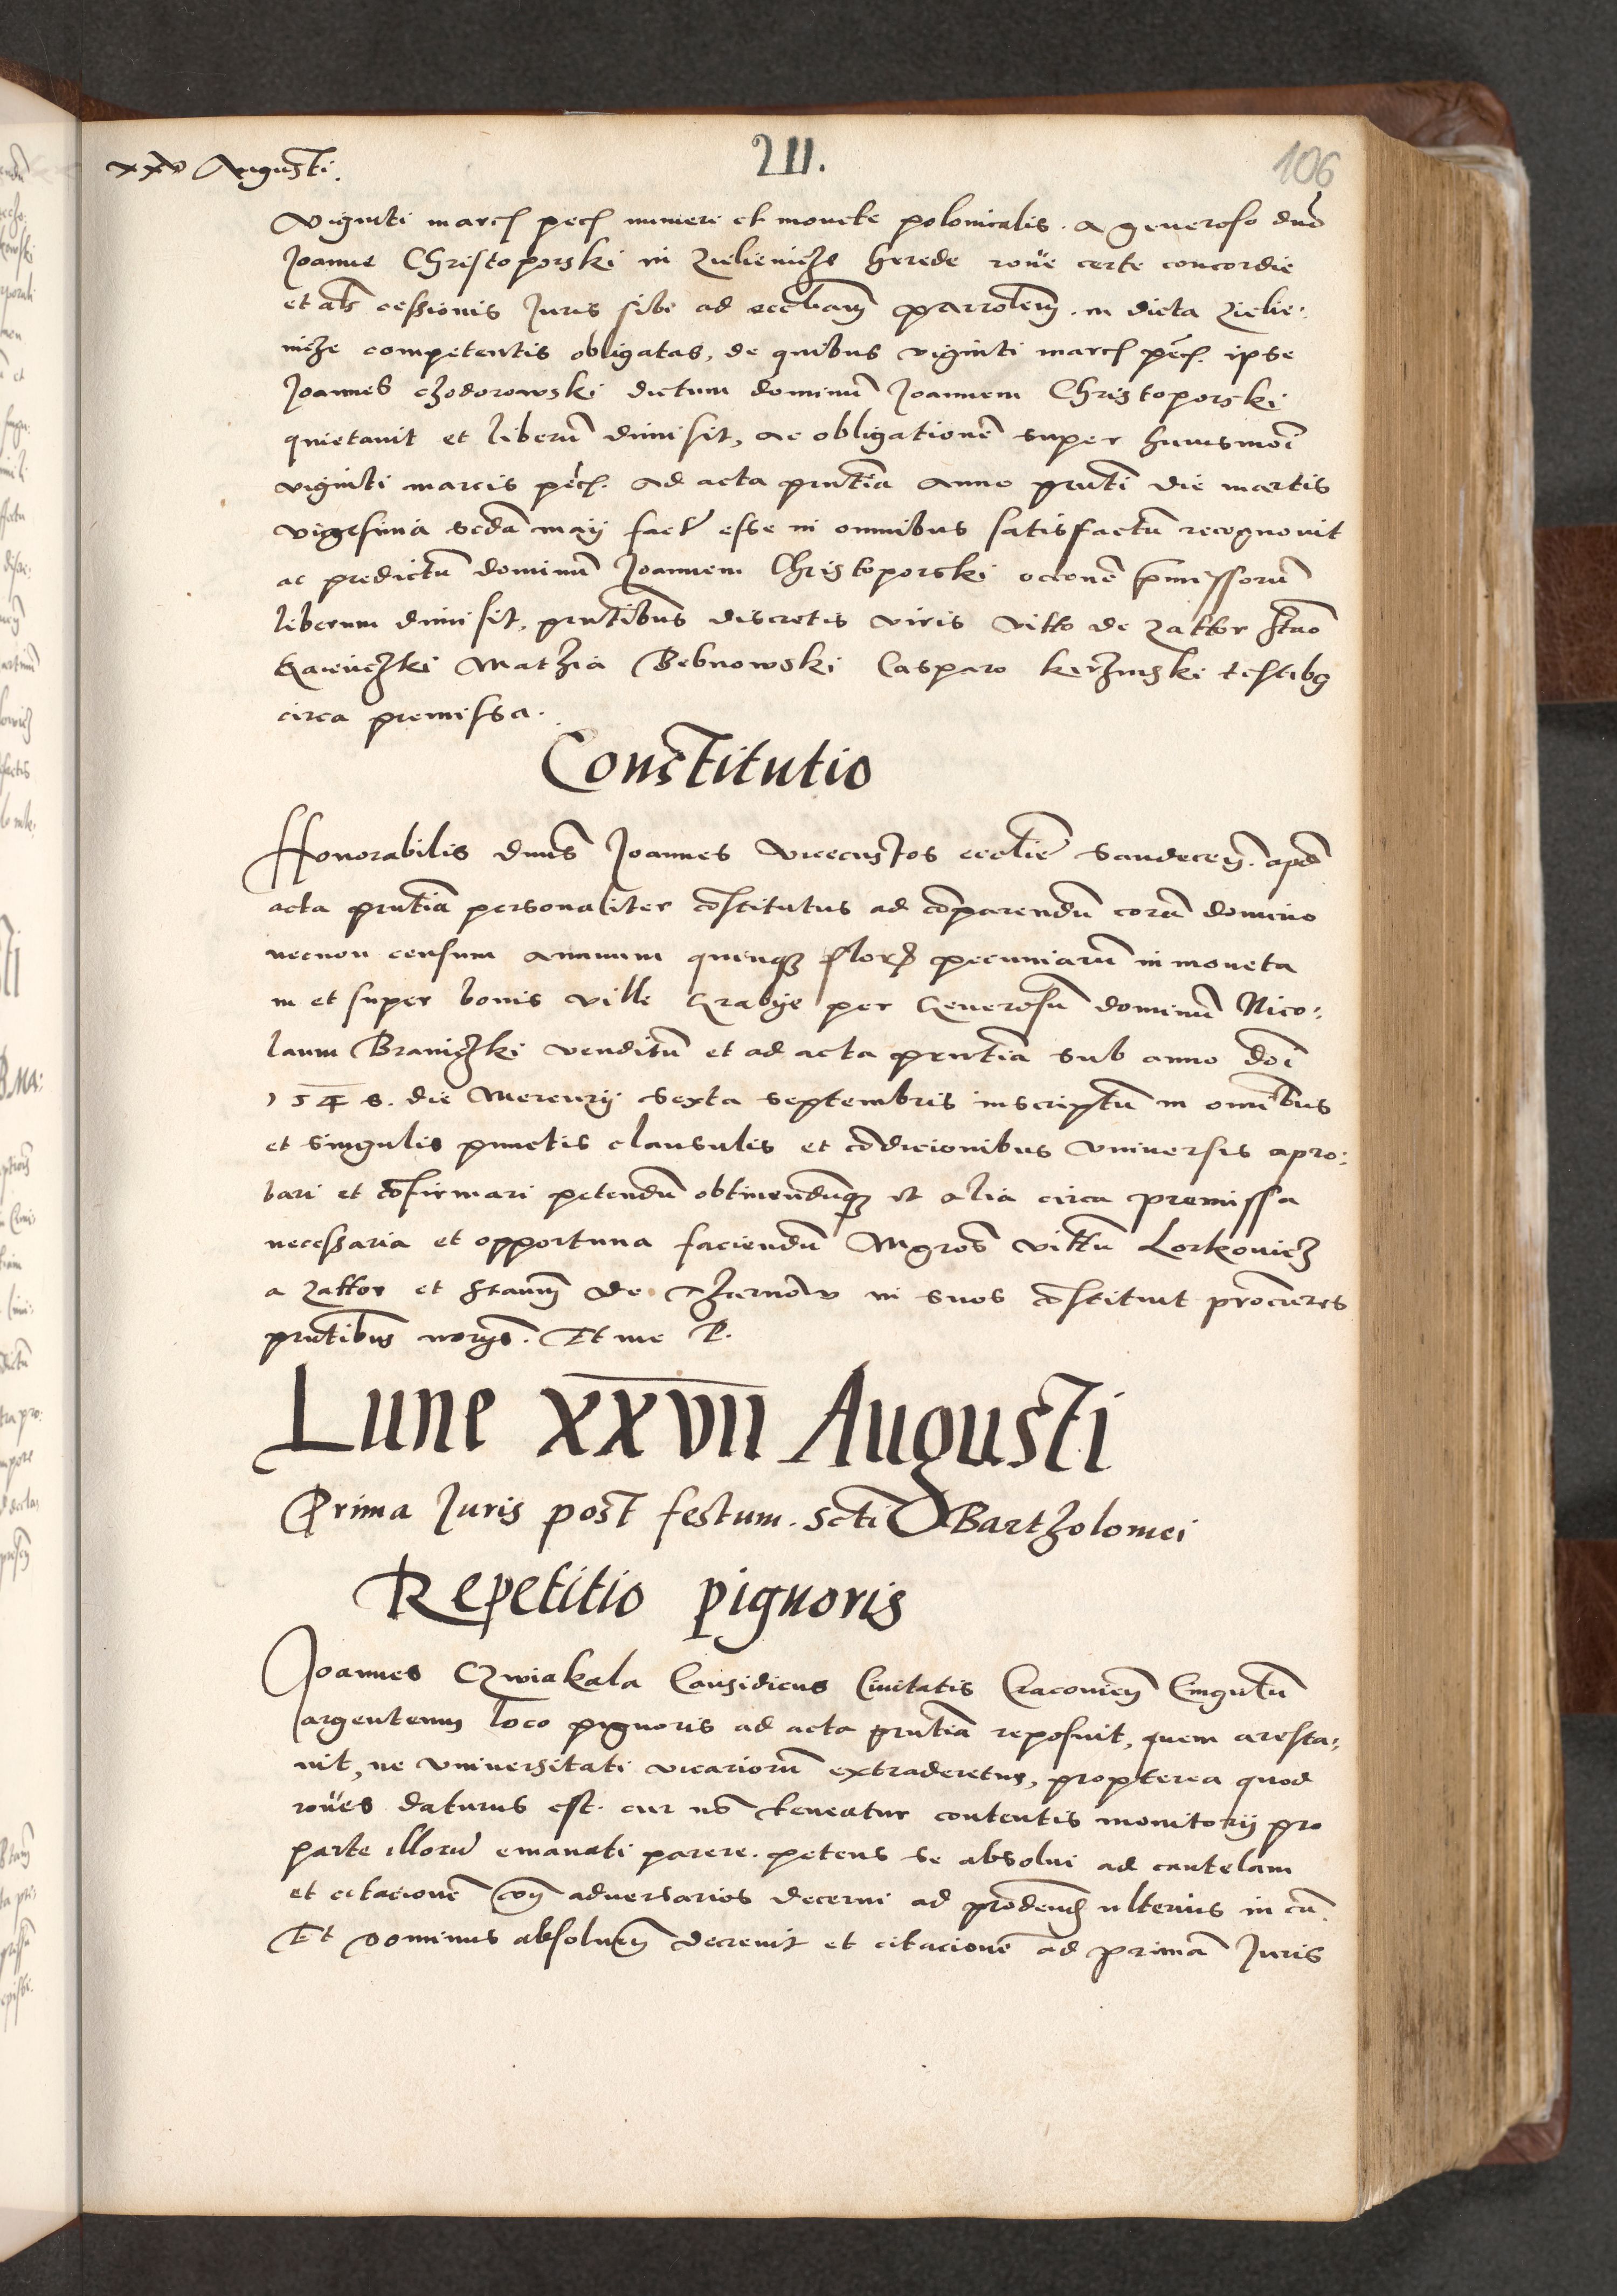 xxv Augusti.
211.
106
Viginti marcs pecs numeri et monete polonicalis. a generoso dno
Joanne Christoporski in Zielienicze herede roñe certe concordie
et als cessionis Juris sibi ad ecclbam parrolem. in dicta Zielie:
nicze competentis obligatas, de quibus viginti marcs pecs. ipse
Joannes Chodorowski dictum dominū Joannem Christoporski
quietauit et liberū dimisit, ac obligationē super huiusmoi
viginti marcis pecs. ad acta pnтia anno pnti die martis
vigesima scda maij fact esse in omnibus satisfactū recognouit
ac predictū dominū Joannem Christoporski occone pmissorū
liberum dimisit, pntibus discretis viris Vitto de Zattor Stano
Mathia Bebnowski Casparo testibq
circa premissa.
Constitutio
Honorabilis dnus Joannes Vicecustos ecclie Sandecen. apd
acta pntia personaliter cōstitutus ad cōparendū corā domino
necnon censum annuum quinqz flor pecuniarū in moneta
in et super bonis ville Grabye per Generosū dominū Nico:
laum Braniczki venditū et ad acta pntia sub anno doi
1548. die Mercurij sexta septembris inscriptū in omibus
et singulis punctis clausulis et cōdicionibus vniuersis apro:
bari et cōfirmari petendū obtinendūqz et alia circa premissa
necessaria et opportuna faciendū Mgros Vittū Lorkovicz
a Zattor et Stanm de in suos cōstituit procures
pntibus norys. Et me P.
Lune xxvii Augusti
Prima Juris post festum. Scti Bartholomei
Repetitio pignoris
Joannes Czwiakala Causidicus Ciuitatis Cracovien Cingulū
argenteum loco pignoris ad acta pntia reposuit, quem aresta:
uit, ne vniuersitati vicariorū extraderetur, propterea quod
roñes daturus est. cur nō teneatur contentis monitorij pro
parte illorū emanati parere. petens se absolui ad cautelam
et citacionē con adversarios decerni ad prodend ulterius in cā.
Et Dominus absolucm decreuit et citacionē ad primā Juris